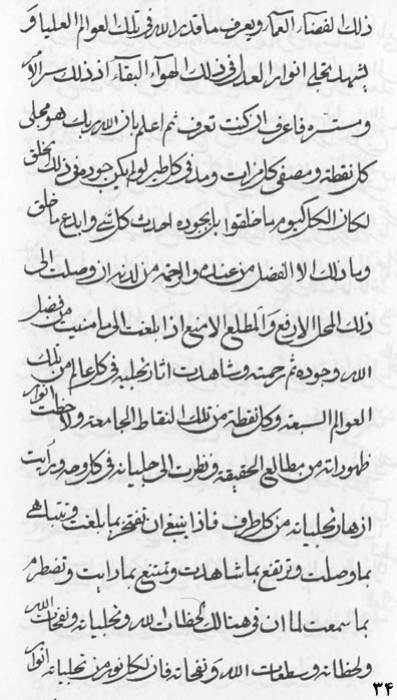 ذلك الفضاء العماء ويعرف ما قدر الله فى تلك العوالم العليا و
يشهد تجلى انوار العدل فى ذلك الهواء البقاء اذ ذلك سر الامر
ومستسره فاعرف ان كنت تعرف ثم اعلم بان الله ربك هو مجلى
كل نقطة ومصفى كل مرات و فى كل طير لو لم يكن جوده فوق ذلك الخلق
لكان الكل كيوم ما خلقوا بل بجوده احدث كل شىء وابدع ما خلق
وما ذلك الا الفضل من عنده والرحمة من لدنه ان وصلت الى
ذلك المحل الارفع والمطلع الامنع اذا بلغت الى ما منيت من فضل
الله وجوده ثم رحمته وشاهدت اثار تجليه فى كل عالم من تلك
العوالم السبعة وكل نقطة من تلك النقاط الجامعة ولاحظت انوار
ظهوراته من مطالع الحقيقة ونظرت الى جلياته فى كل وجه ورايت
ازهار تجلياته من كل طرف فاذا ينبغى ان تفتخر بما بلغت وتتباهى
بما وصلت وترتفع بما شاهدت وتمتنع بما رايت وتضطرم
بما سمعت لما ان فى هنالك لحظات الله وتجلياته ونفحات الله
ولحظاته وسطعات الله ونفحاته فان لكل نور من تجلياته انوار
٣٤